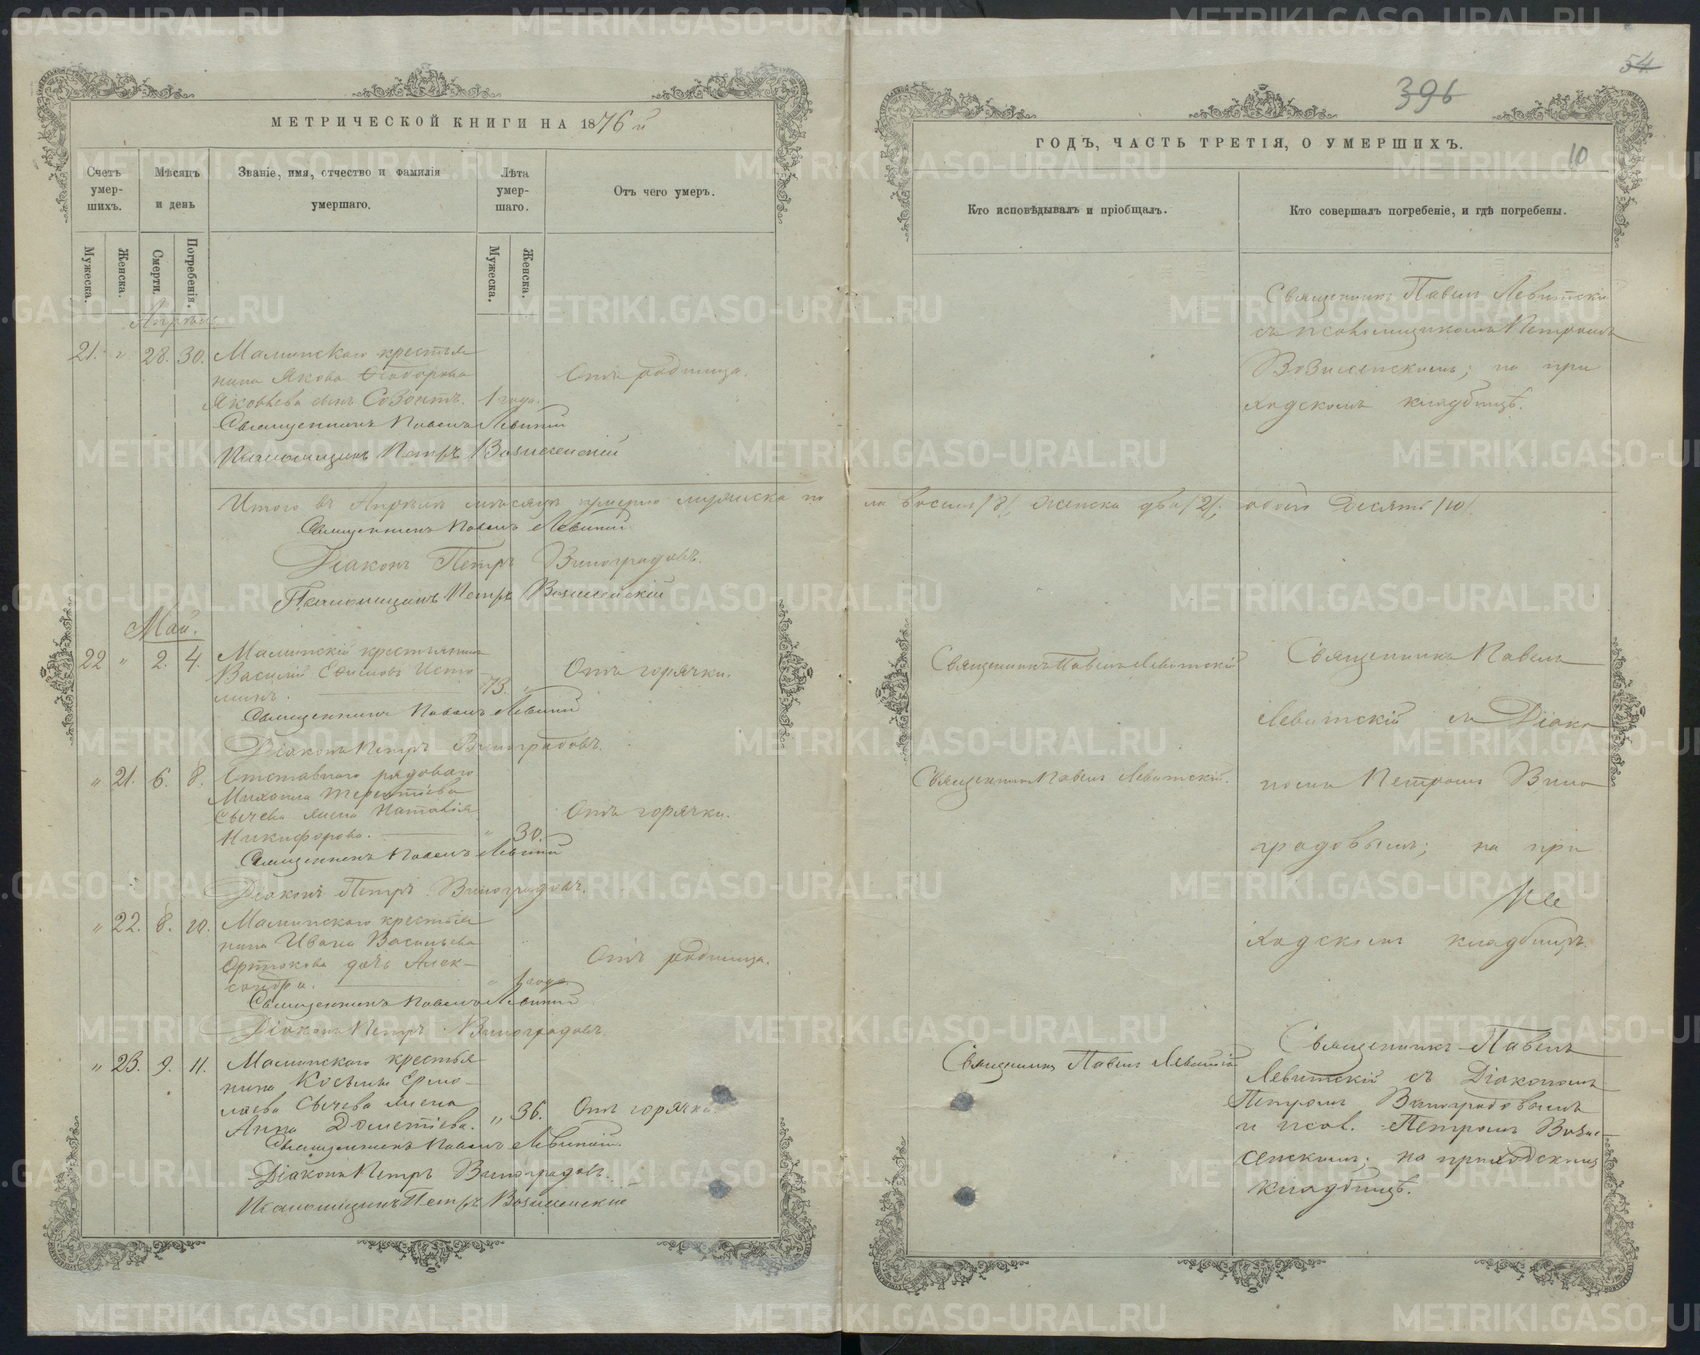 МЕТРИЧЕСКОЙ КНИГИ НА 1876 й
Счетъ умер-шихъ.
Мѣсяцъ и день
Званіе, имя, отчество и фамилія умершаго.
Лѣта умер-шаго.
Отъ чего умеръ.
Мужеска.
Женска.
Смерти.
Погребенія.
Мужеска.
Женска.
Апрѣль
21. " 28. 30. Маминскаго крестья
нина Якова Ѳеодорова
Яковлева сынъ Созонтъ. 1 года. Отъ родимца.
Священникъ Павелъ Левитскій
Псаломщикъ Петръ Вознесенскій
Итого въ Апрѣлѣ мѣсяцѣ умерло мужеска по
Священникъ Павелъ Левитскій
Діаконъ Петръ Виноградовъ.
Псаломщикъ Петръ Вознесенскій
Май.
22 " 2. 4. Маминскій крестьянинъ
Василій Ефимовъ Исто
минъ. 73. " Отъ горячки.
Священникъ Павелъ Левитскій
Діаконъ Петръ Виноградовъ.
" 21. 6. 8. Отставнаго рядоваго
Михаила Терентіева
Сычева жена Наталія
Никифорова. " 30. Отъ горячки.
Священникъ Павелъ Левитскій
Діаконъ Петръ Виноградовъ.
" 22. 8. 10. Маминскаго крестья
нина Ивана Васильева
дочь Алек-
сандра. " 1 года Отъ родимца.
Священникъ Павелъ Левитскій
Діаконъ Петръ Виноградовъ
" 23. 9. 11. Маминскаго крестья
нина Косьмы Ермо-
лаева Сычева жена
Анна Дометіева. " 36. Отъ горячки.
Священникъ Павелъ Левитскій.
Діаконъ Петръ Виноградовъ.
Псаломщикъ Петръ Вознесенскій
54
396
10
ГОДЪ, ЧАСТЬ ТРЕТІЯ, О УМЕРШИХЪ.
Кто исповѣдывалъ и пріобщалъ.
Кто совершалъ погребеніе, и гдѣ погребены.
Священникъ Павелъ Левитскій
съ псаломщикомъ Петромъ
Вознесенскимъ; на при
ходскомъ кладбищѣ.
ла восемь /8/, женска два /2/, обоего десять /10/
Священникъ Павелъ Левитскій
Священникъ Павелъ
Левитскій съ Діако
Священникъ Павелъ Левитскій.
номъ Петромъ Вино
градовымъ; на при
ходскомъ кладбищѣ.
Священникъ Павелъ Левитскій
Священникъ Павелъ
Левитскій съ Діакономъ
Петромъ Виноградовымъ
и псал. Петромъ Возне-
сенскимъ; на приходскомъ
кладбищѣ.
METRIKI.GASO-URAL.RU